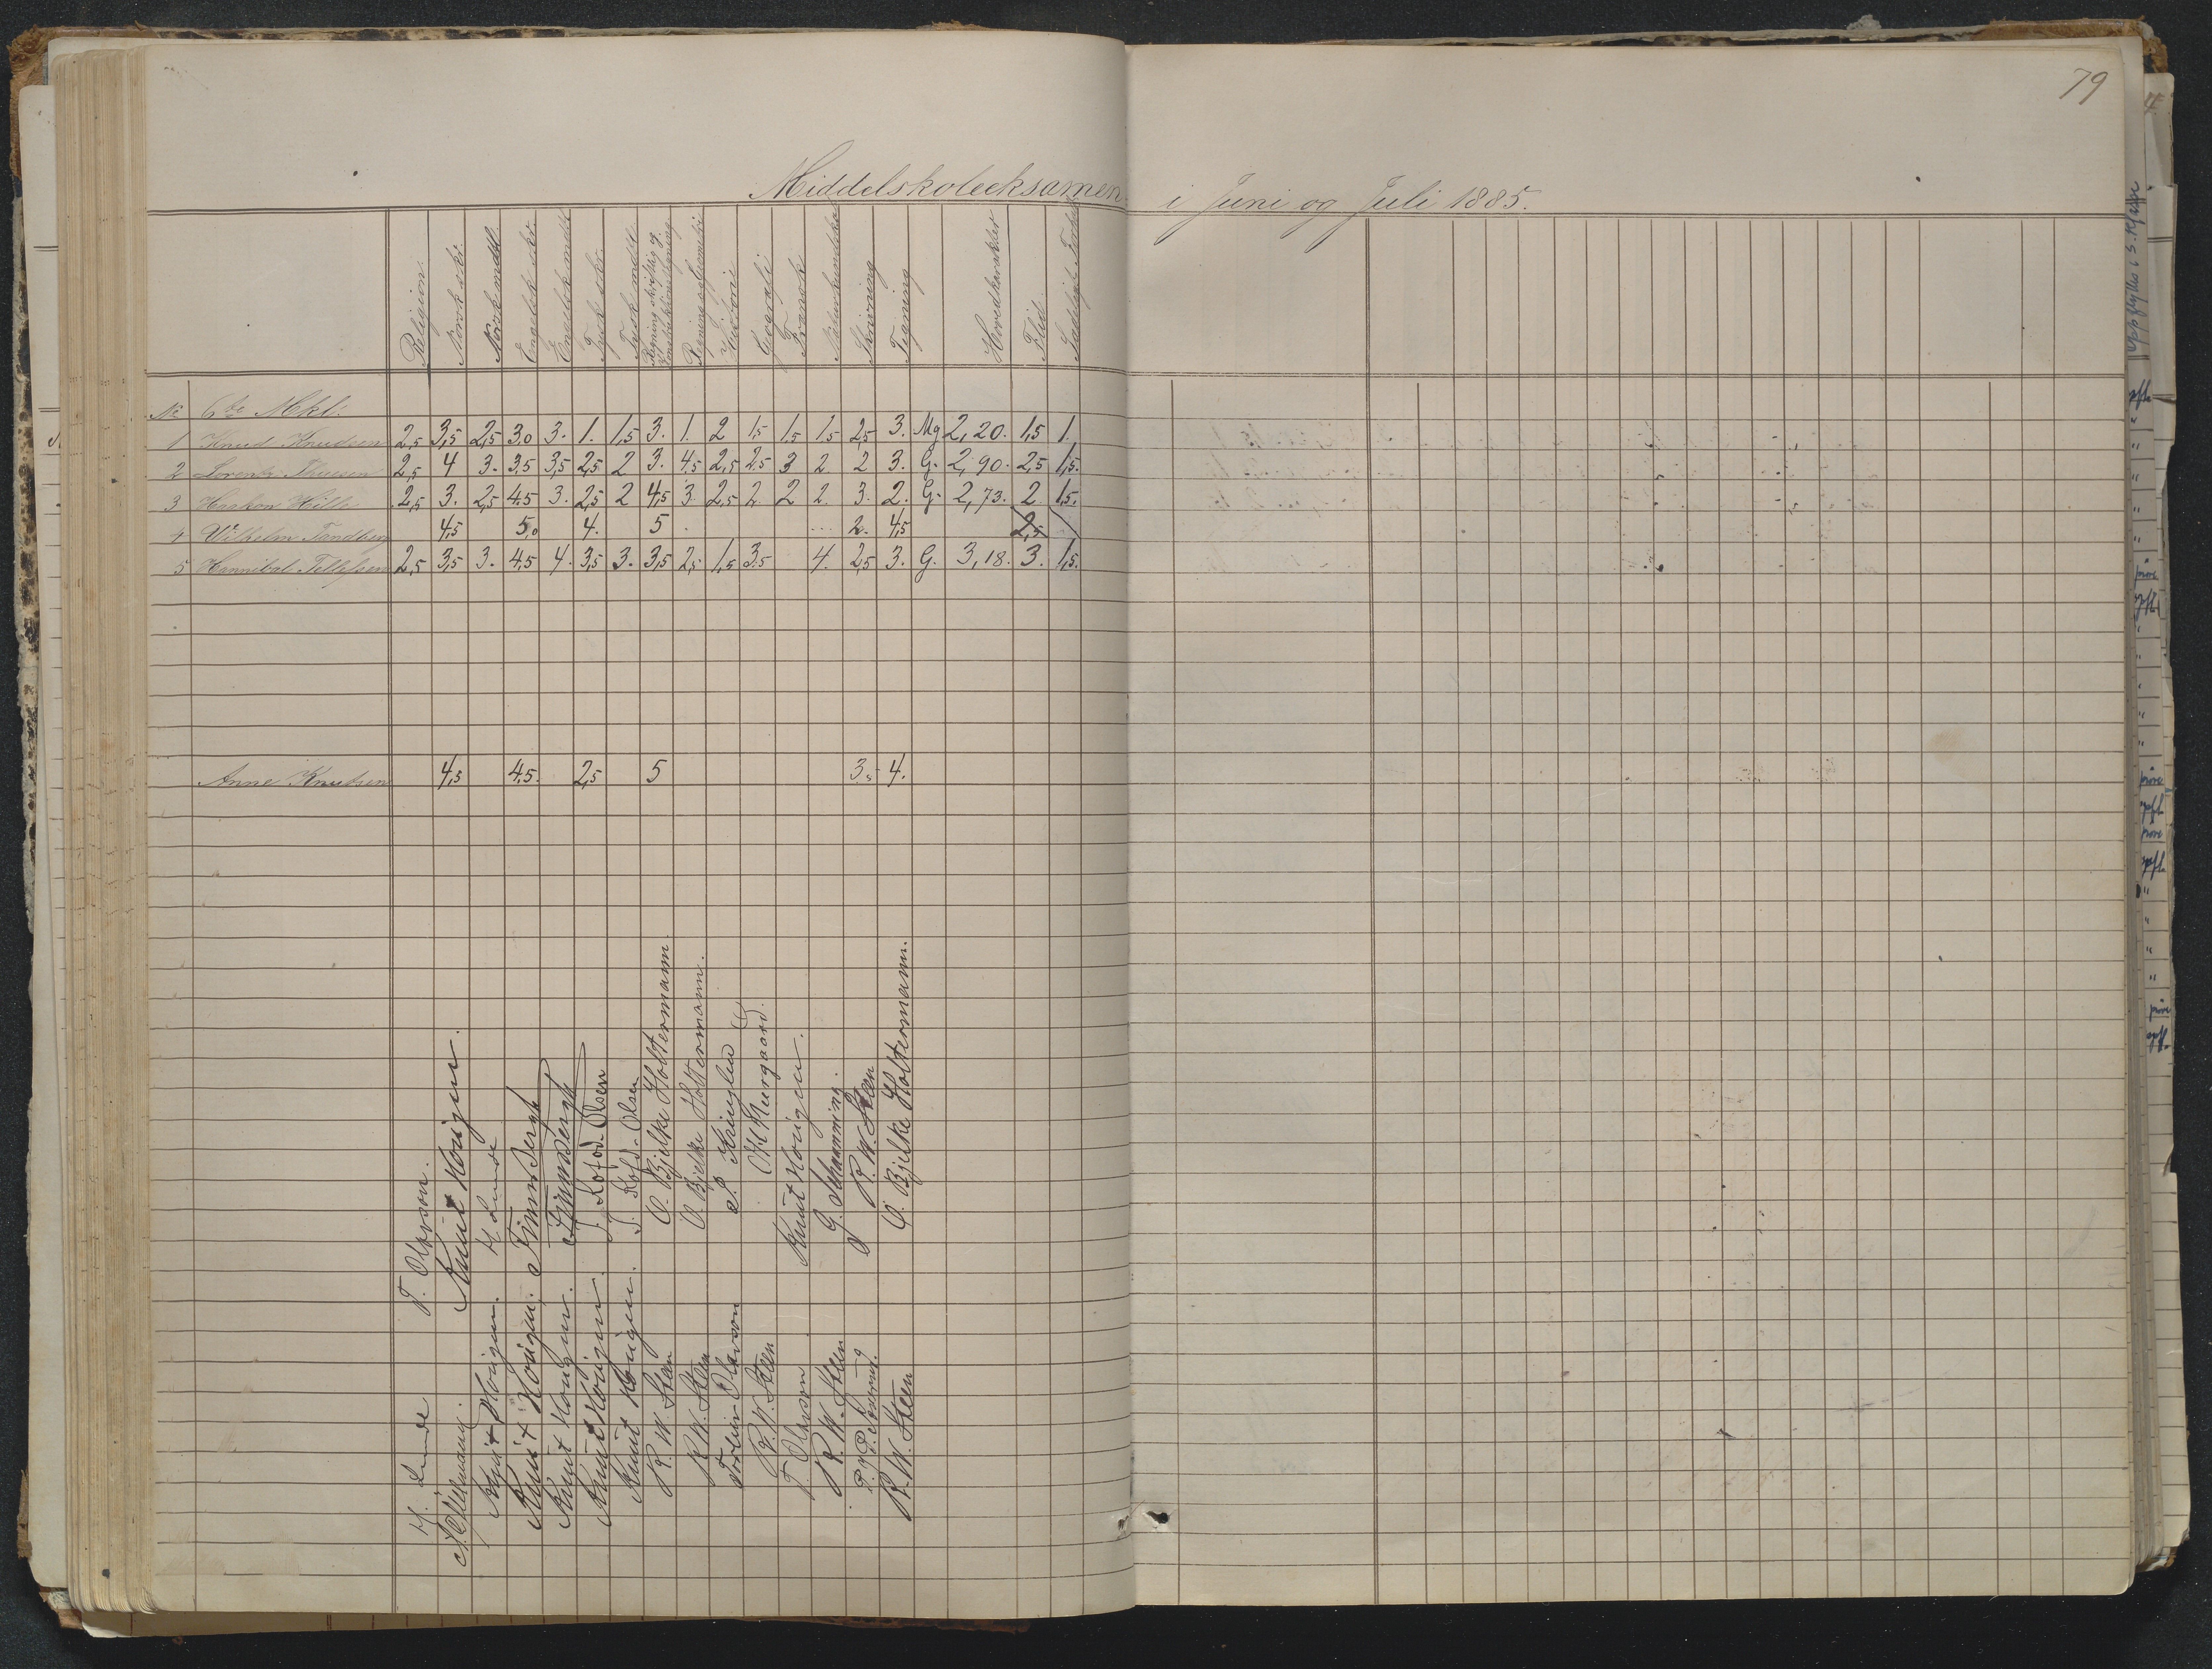 79
Middelskoleeksamen i Juni og Juli 1885.
Religion. Norsk skr. Norsk mdtl. Engelsk skr. Engelsk mdtl Tysk skr. Tysk mdtl. Regning skriftlig og Regning og Geometri Historie Geografi Fransk Naturkundskab Skrivning Tegning Hovedkarakter Flid
No 6te Mkl.
1 Knud Knudsen 2,5 3,5 2,5 3,0 3. 1. 1,5 3. 1. 2 1,5 1,5 1,5 2,5 3. Mg 2,20. 1,5 1.
2 Lorentz Thuesen 2,5 4 3. 3,5 3,5 2,5 2 3. 4,5 2,5 2,5 3 2. 2 3. G. 2,90. 2,5 1,5.
3 Haakon Hille 2,5 3. 2,5 4,5 3. 2,5 2 4,5 3. 2,5 2 2 2. 3. 2. G. 2,73. 2 1,5.
4 Wilhelm Tandberg 4,5 5,0 4. 5 2. 4,5 2,5
5 Hannibal Tellefsen 2,5 3,5 3. 4,5 4. 3,5 3. 3,5 2,5 1,5 3,5 4. 2,5 3. G. 3,18. 3. 1,5.
Anne Knudsen 4,5 4,5. 2,5 5 3,5 4.
H. Lunde T. Olavson.
Knut Honigen.
Knut Honigen. H. Lunde
Knut Honigen.
Knut Honigen.
Knut Honigen. J. Kofod-Olsen
Knut Honigen. J. Kofd-Olsen
R. W. Steen O. Bjelke Holtermann.
R. W. Steen O. Bjelke Holtermann.
Torleiv Olavson
R. W. Steen
T. Olavson Knut Honigen.
R. W. Steen G. Schanning.
R. W. Steen
R. W. Steen O. Bjelke Holtermann.